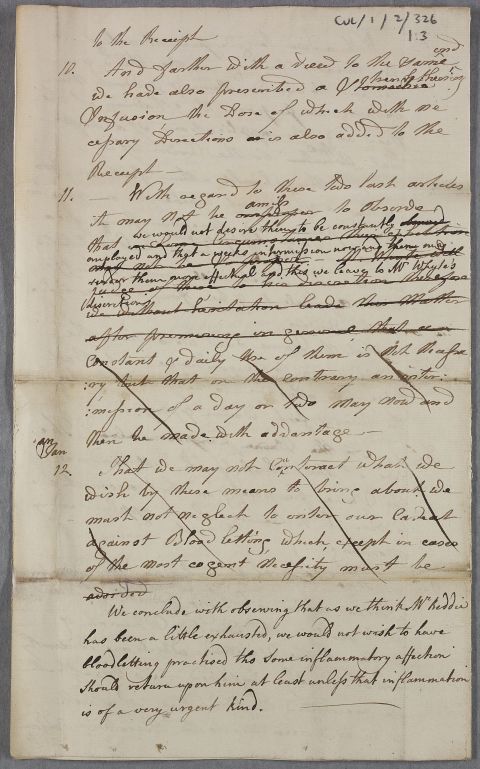 CUL/1/2/326
1:3
to the Receipt
10. And farther with a view to the same end
we have also prescribed a Stomachic strengthening
Infusion the Dose of which with ne
cessary Directions is also added to the
Receipt —
11. — With regard to these two last articles
it may not be amiss improper to observe
that we would not desire them to be constantly
employed and that a short intermission now and then would
render them more effectual and this we leave to Mr Whyte's
discretion
we without hesitation leave this Matter
after premising in general that a
Constant & daily Use of them is not necessa
:ry but that on the contrary an inter:
:mission of a day or two may now and
then be made with advantage —
12. That we may not Counteract what we
wish by these means to bring about we
must not neglect to enter our Caveat
against Blood letting which except in cases
of the most cogent Necessity must be
avoided
We conclude with observing that as we think Mr Keddie
has been a little exhausted, we would not wish to have
bloodletting practised tho some inflammatory affection
should return upon him at least unless that inflammation
is of a very urgent kind.